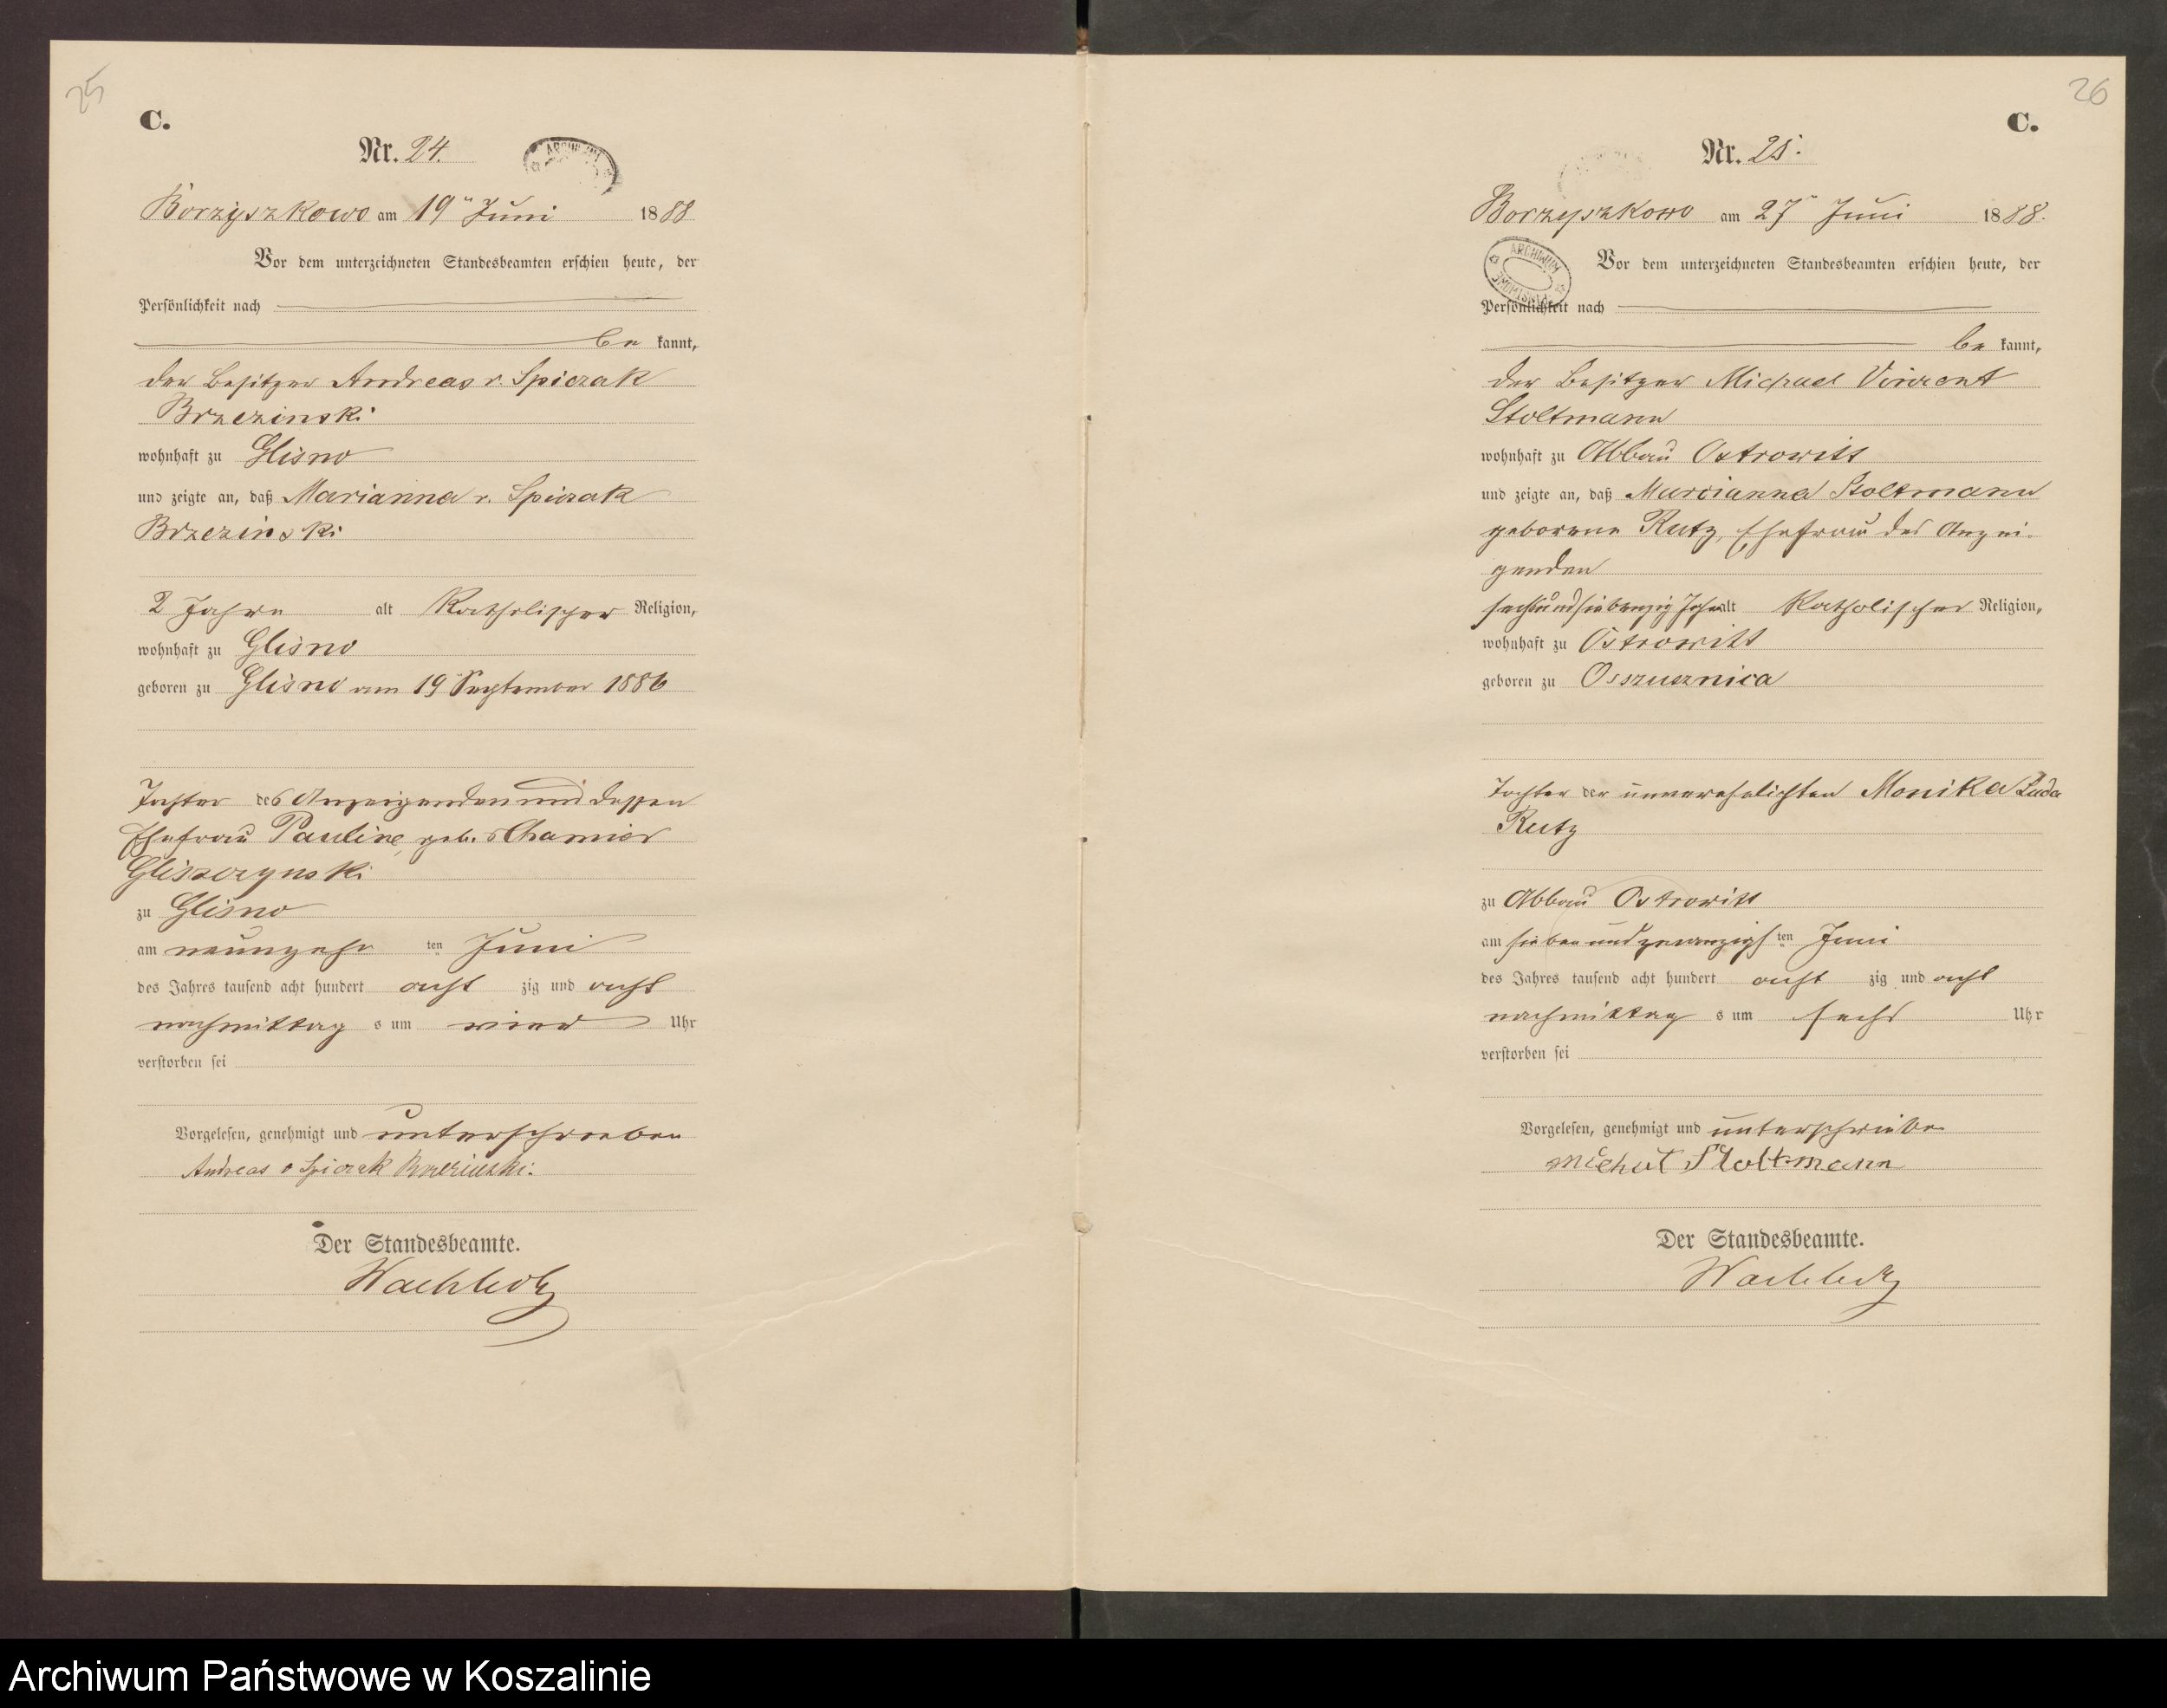 25
C.
Nr. 24.
ARCHIWUM
Borzyszkowo am 19ten Juni 1888
Vor dem unterzeichneten Standesbeamten erschien heute, der
Persönlichkeit nach
be kannt,
der Besitzer Andreas v. Spiczak
Brzezinski
wohnhaft zu Glisno
und zeigte an, daß Marianna v. Spiczak
Brzezinski
2 Jahre alt katholischer Religion,
wohnhaft zu Glisno
geboren zu Glisno am 19 September 1886
Tochter des Anzeigenden und dessen
Ehefrau Pauline geb. v Chamier
Gliszczynski
zu Glisno
am neunzehn ten Juni
des Jahres tausend acht hundert acht zig und acht
nachmittag s um vier Uhr
verstorben sei
Vorgelesen, genehmigt und unterschrieben
Andreas v Spiczak Brzezinski.
Der Standesbeamte.
Wachholz
26
C.
Nr. 25.
Borzyszkowo am 27ten Juni 1888.
ARCHIWUM
Vor dem unterzeichneten Standesbeamten erschien heute, der
Persönlichkeit nach
be kannt,
der Besitzer Michael Vincent
Stoltmann
wohnhaft zu Abbau Ostrowitt
und zeigte an, daß Marianna Stoltmann
geborene Rutz, Ehefrau des Anzei-
genden
sechsundsiebenzig Jahr alt katholischer Religion,
wohnhaft zu Ostrowitt
geboren zu Osszusznica
Tochter der unverehelichten Monika Luda
Rutz
zu Abbau Ostrowitt
am sieben und zwanzigs ten Juni
des Jahres tausend acht hundert acht zig und acht
nachmittag s um sechs Uhr
verstorben sei
Vorgelesen, genehmigt und unterschrieben
Michal Stoltmann
Der Standesbeamte.
Wachholz
Archiwum Państwowe w Koszalinie